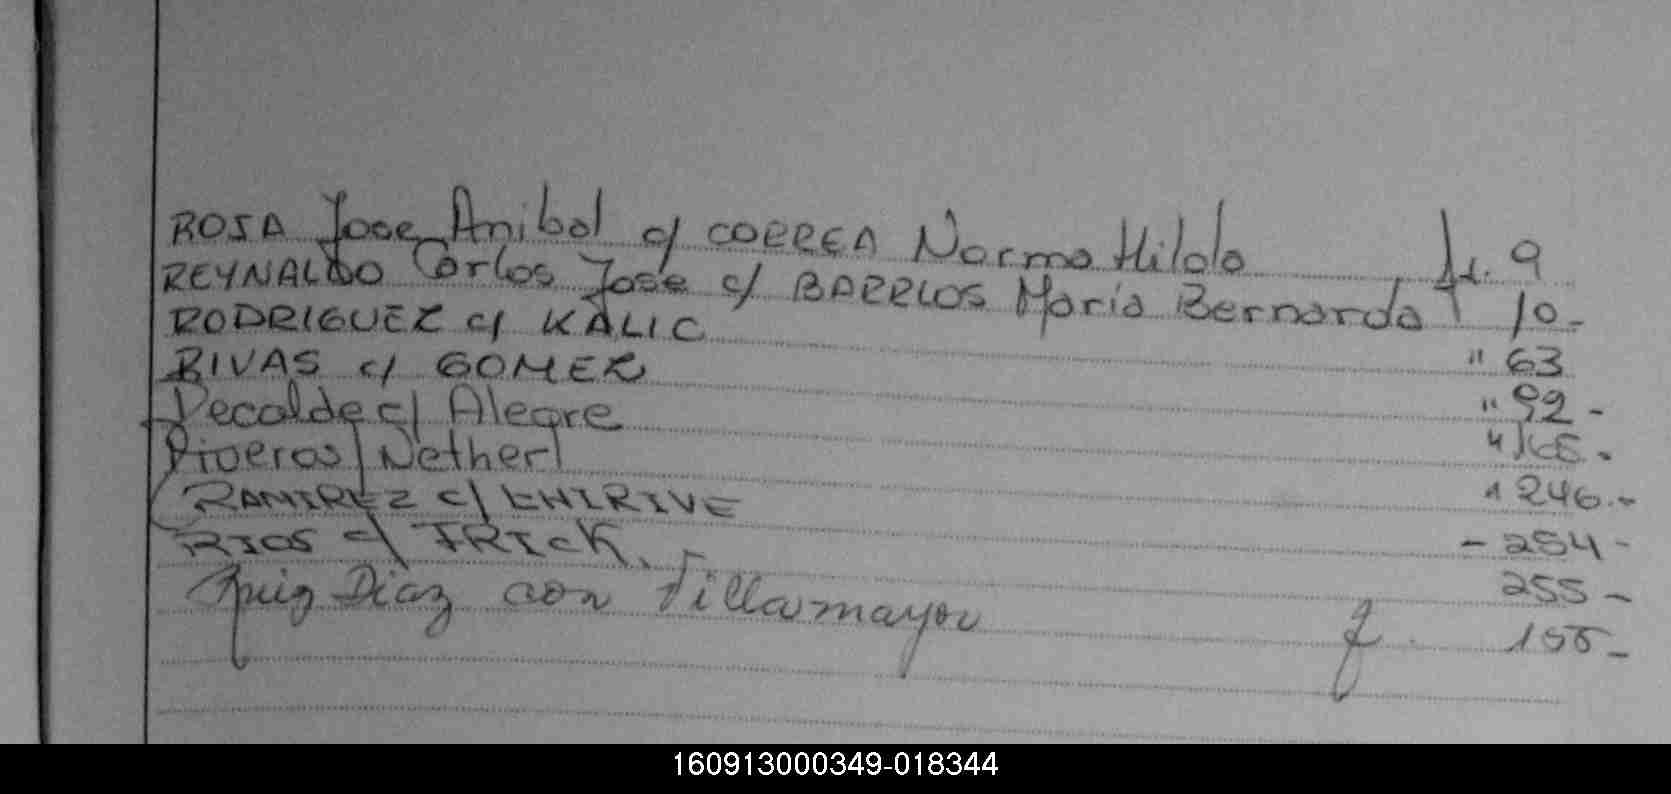 ROSA Jose Anibal c/ CORREA Norma Hilda 9
REYNALDO Carlos José c/ BARRIOS Maria Bernarda 10-
RODRIGUEZ c/ KALIC " 63
RIVAS c/ GOMEZ " 92-
c/ Alegre
Riveros 246.-
RAMIREZ c/ - 254-
RIOS c/ FRICK. 255-
Ruiz Diaz con Villamayor f. 155-
160913000349-018344